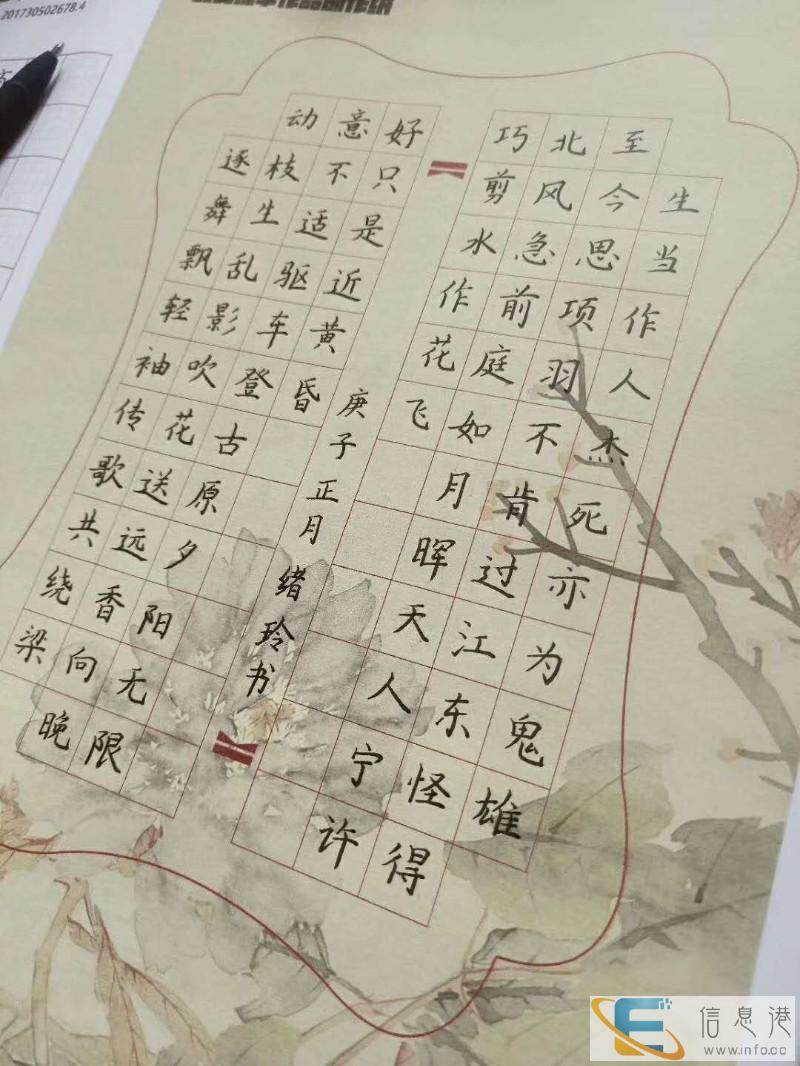 201730502678.4
生当作人杰死亦为鬼雄
至今思项羽不肯过江东怪得
北风急前庭如月晖天人宁许
巧剪水作花飞
逐舞飘轻袖传歌共绕梁
动枝生乱影吹花送远香向晚
意不适驱车登古原夕阳无限
好只是近黄昏
庚子正月绪玲书
信息港
www.info.cc